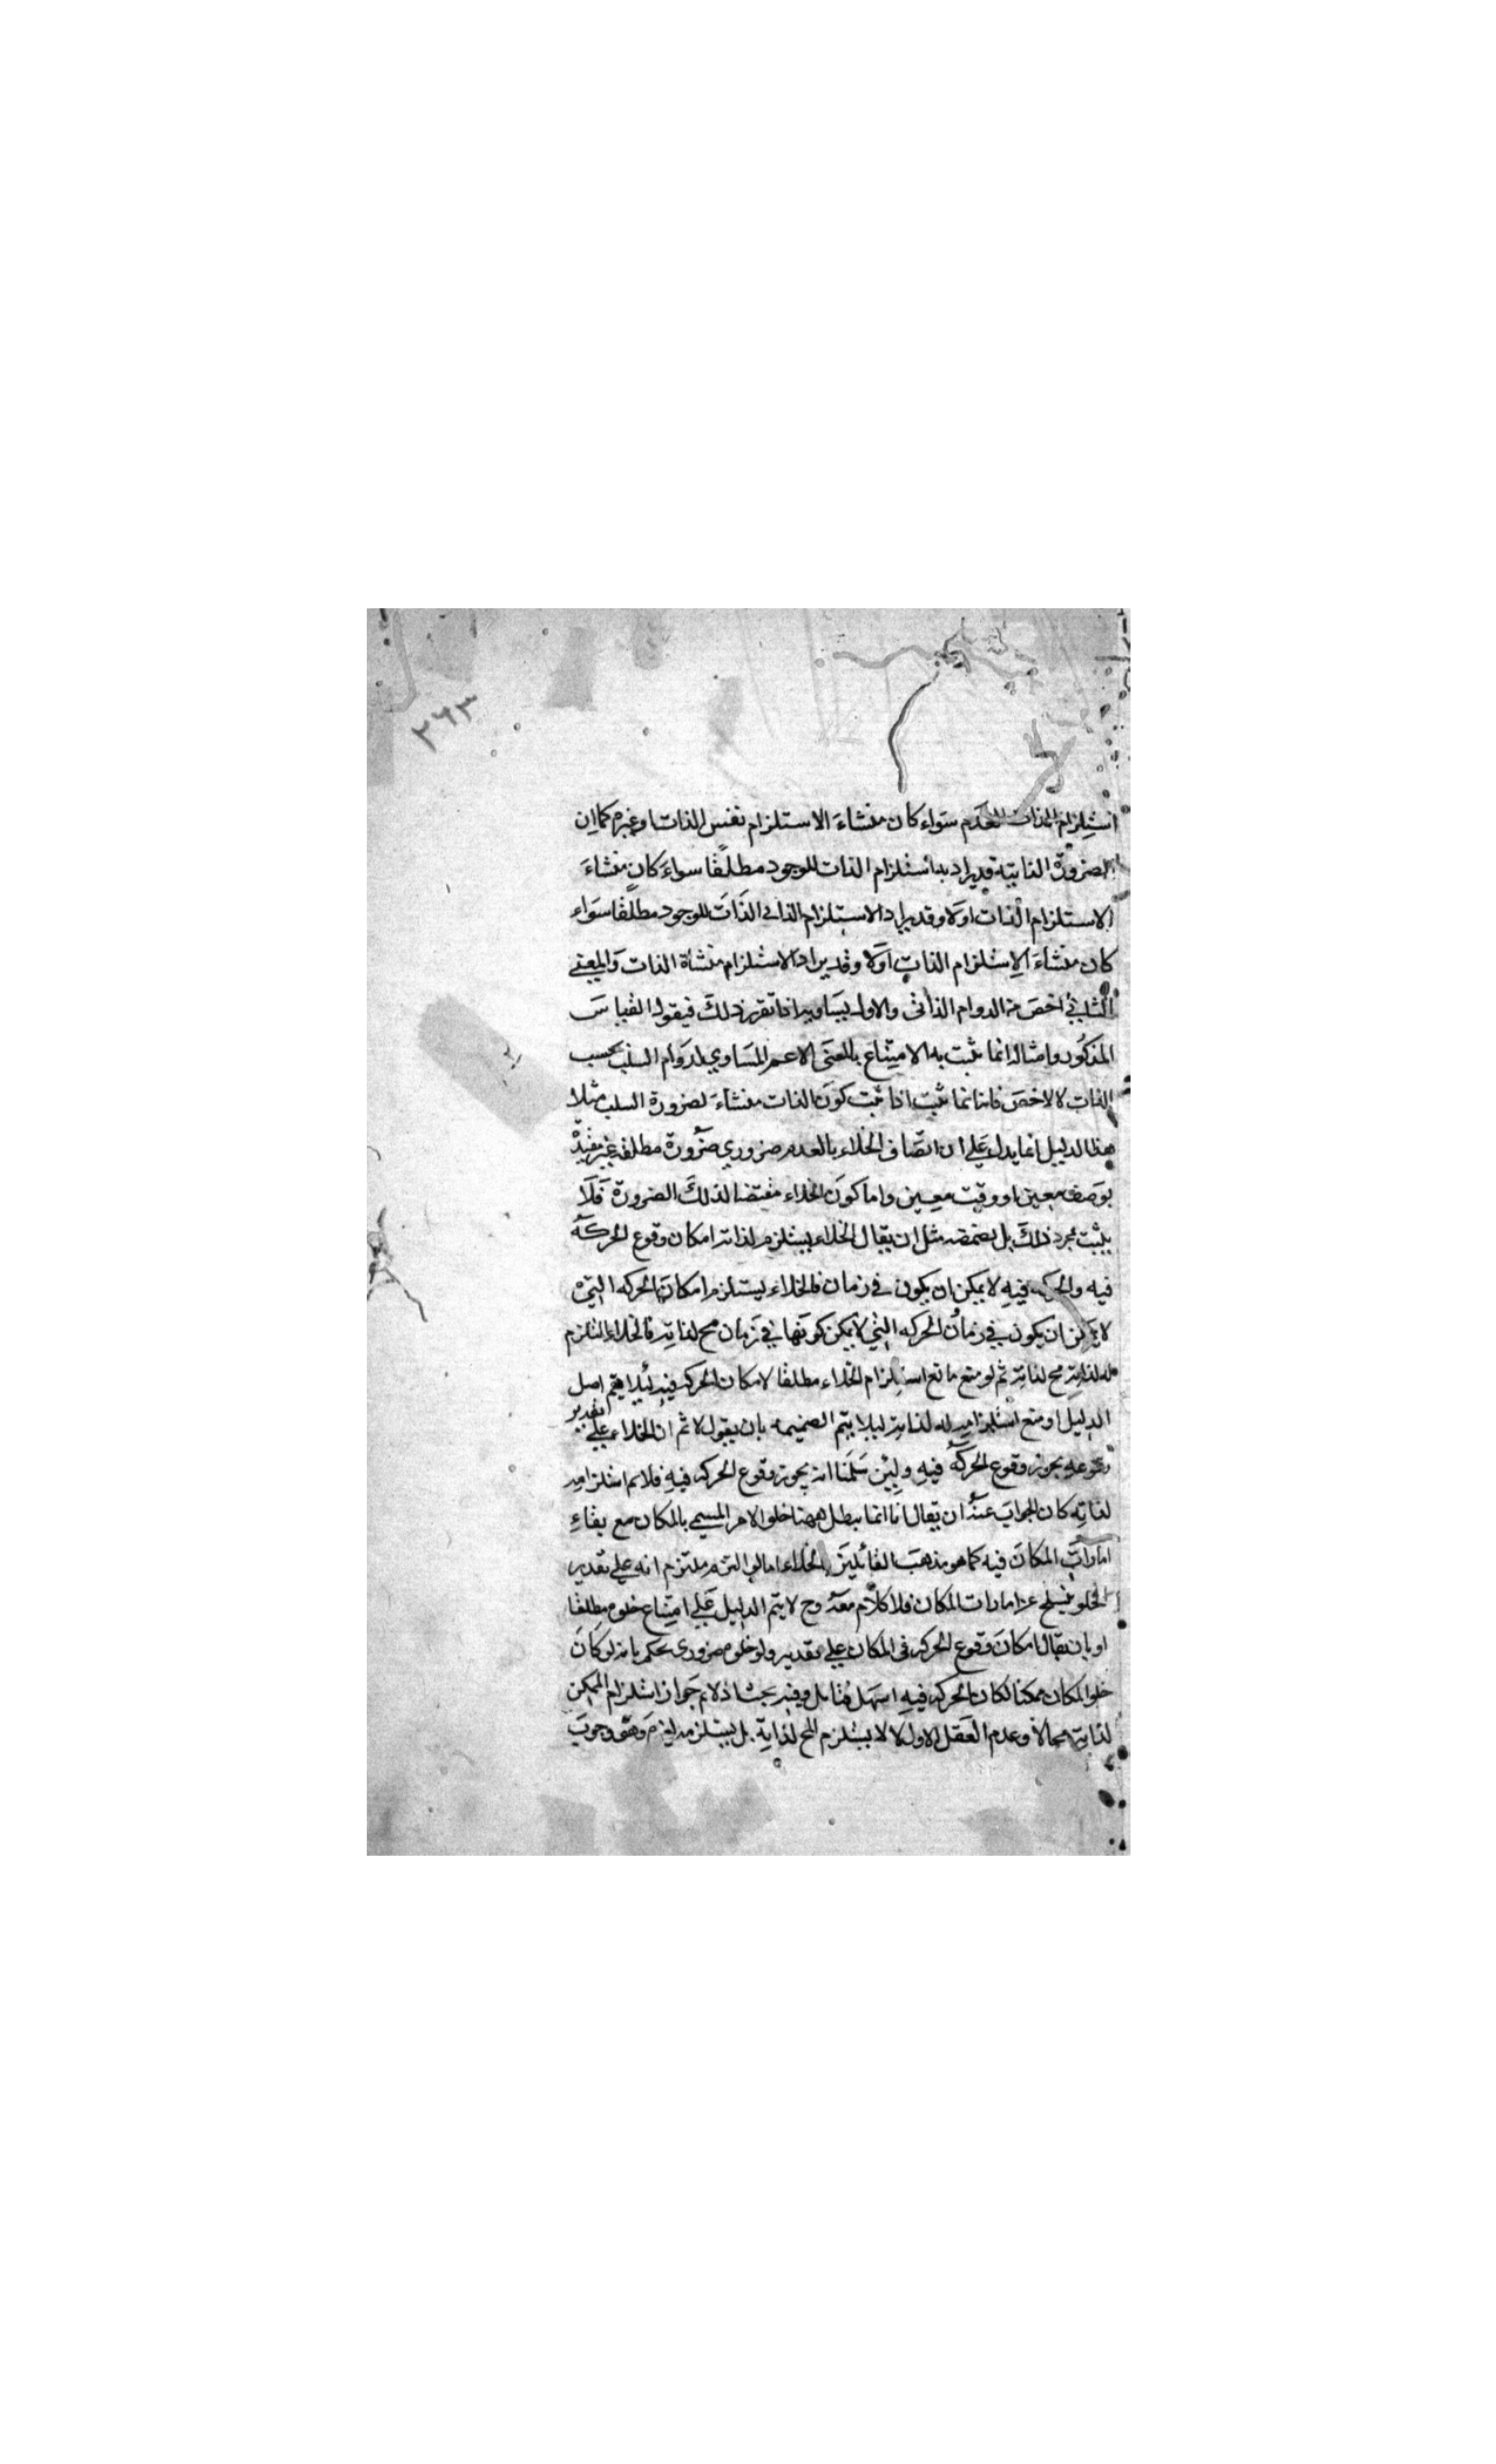 ٢٦٣
استلزام الذات للعدم سواء كان منشاء الاستلزام نفس الذات او غيره كما ان
الضرورة الذاتية قد يراد بها استلزام الذات للوجود مطلقا سواء كان منشاء
الاستلزام الذات اولا وقد يراد الاستلزام الذاتى الذات للوجود مطلقا سواء
كان منشاء الاستلزام الذات اولا وقد يراد الاستلزام منشأه الذات والمعنى
الثاني اخص من الدوام الذاتى والاول يساويه اذا تقرر ذلك فيقول القياس
المذكور وامثاله انما يثبت به الامتناع بالمعنى الاعم المساوي لدوام السلب بحسب
الذات لا الاخص فانه انما يثبت اذا ثبت كون الذات منشاء لضرورة السلب مثلا
هذا الدليل انما يدل علي ان اتصاف الخلاء بالعدم ضروري ضرورة مطلقه غير مقيد
بوصف معين او وقت معين واما كون الخلاء مقتضا لذلك الضرورة فلا
يثبت بمجرد ذلك بل بضميمه مثل ان يقال الخلاء يستلزم لذاته امكان وقوع الحركة
فيه والحركه فيه لا يمكن ان يكون في زمان فالخلاء يستلزم امكان الحركه التي
لا يمكن ان يكون في زمان الحركه التي لا يمكن كونها في زمان مح لذاته فالخلاء المستلزم
له لذاته مح لذاته ثم لو منع مانع استلزام الخلاء مطلقا لامكان الحركه فيه لئلا يتم اصل
الدليل او منع استلزامه له لذاته ليلا يتم الضميمه بان يقول لا ثم ان الخلاء علي تقدير
وقوعه يجوز وقوع الحركة فيه ولين سلمنا انه يجوز وقوع الحركه فيه فلا نم استلزامه
لذاته كان الجواب عنه ان يقال انا انما نبطل ههنا خلو الامر المسمي بالمكان مع بقاء
امارات المكان فيه كما هو مذهب القائلين بالخلاء اما لو التزم ملتزم انه علي تقدير
الخلو ينسلخ عن امارات المكان فلا كلام معه وح لا يتم الدليل علي امتناع خلوه مطلقا
او بان يقال امكان وقوع الحركه فى المكان علي تقدير ولو خلوه ضروري يحكم بانه لو كان
خلو المكان ممكنا لكان الحركه فيه اسهل فتامل وفيه بحث اذ لا نم جواز استلزام الممكن
لذاته محالا وعدم العقل الاول لا لا يستلزم المح لذاته بل يستلزم مه لغيره وهو وجوب